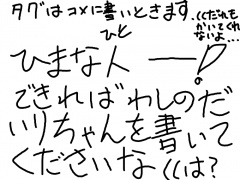 タグはコメに書いときます。((だれも
かいてくれ
ないよ...
ひと
ひまな人ー!
できればわしのだ
いりちゃんを書いて
くださいな((は?